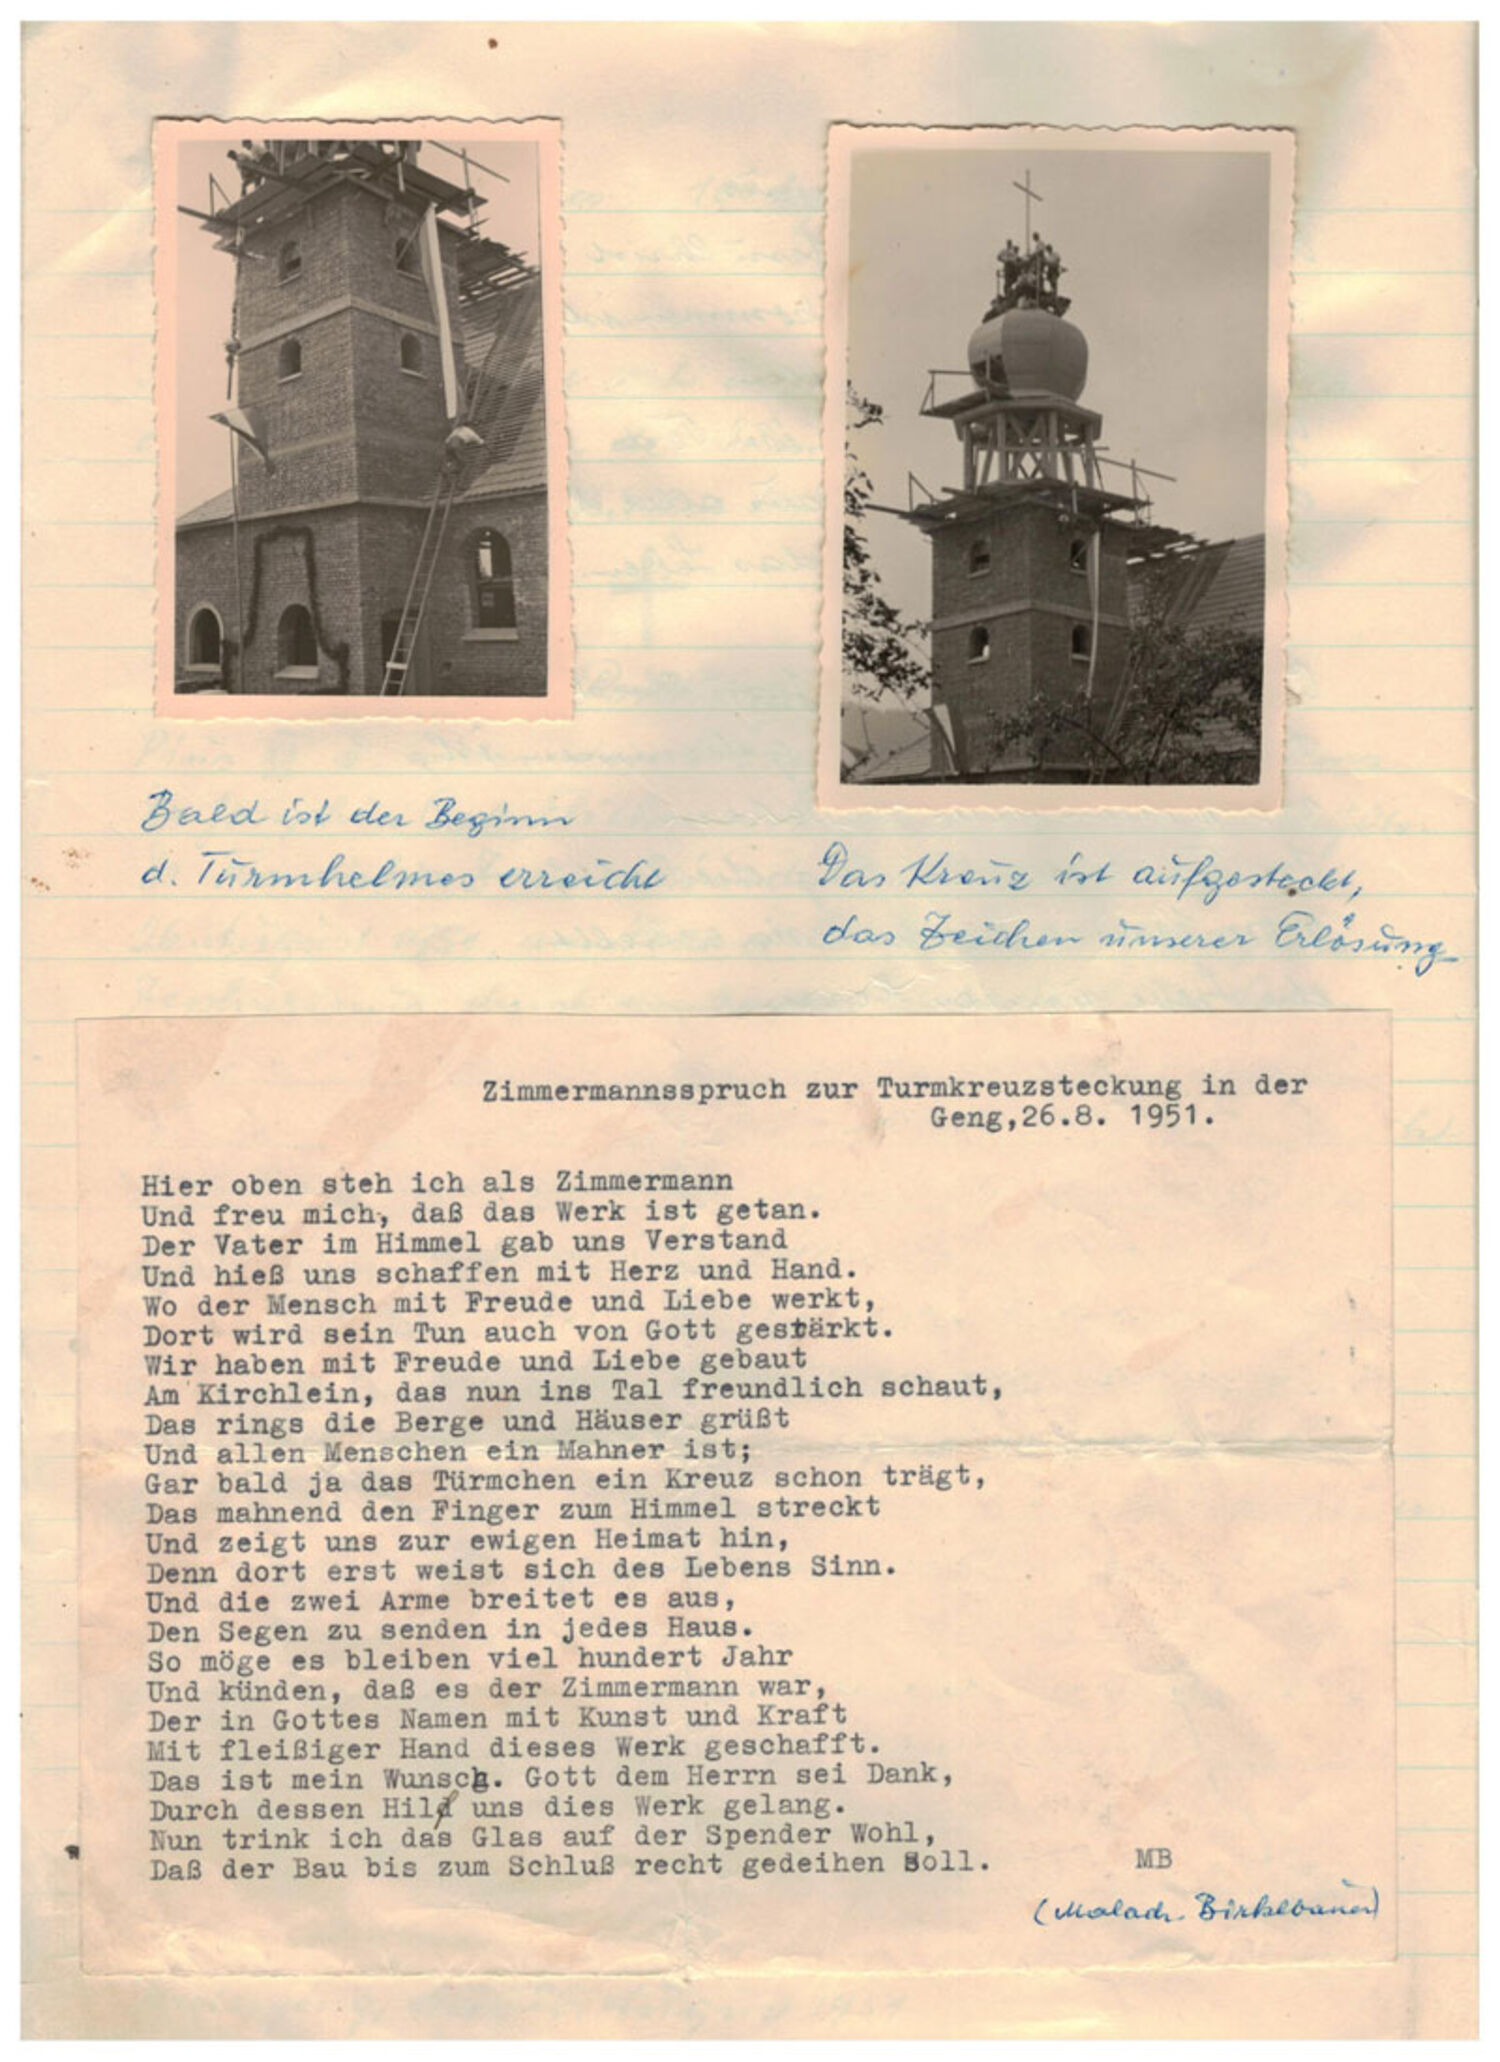 Bald ist der Beginn
d. Turmhelmes erreicht
Das Kreuz ist aufgesteckt,
das Zeichen unserer Erlösung
Zimmermannsspruch zur Turmkreuzsteckung in der
Geng,26.8. 1951.
Hier oben steh ich als Zimmermann
Und freu mich, daß das Werk ist getan.
Der Vater im Himmel gab uns Verstand
Und hieß uns schaffen mit Herz und Hand.
Wo der Mensch mit Freude und Liebe werkt,
Dort wird sein Tun auch von Gott gestärkt.
Wir haben mit Freude und Liebe gebaut
Am Kirchlein, das nun ins Tal freundlich schaut,
Das rings die Berge und Häuser grüßt
Und allen Menschen ein Mahner ist;
Gar bald ja das Türmchen ein Kreuz schon trägt,
Das mahnend den Finger zum Himmel streckt
Und zeigt uns zur ewigen Heimat hin,
Denn dort erst weist sich des Lebens Sinn.
Und die zwei Arme breitet es aus,
Den Segen zu senden in jedes Haus.
So möge es bleiben viel hundert Jahr
Und künden, daß es der Zimmermann war,
Der in Gottes Namen mit Kunst und Kraft
Mit fleißiger Hand dieses Werk geschafft.
Das ist mein Wunsch. Gott dem Herrn sei Dank,
Durch dessen Hilf uns dies Werk gelang.
Nun trink ich das Glas auf der Spender Wohl,
Daß der Bau bis zum Schluß recht gedeihen soll. MB
(Malach. Birklbauer)